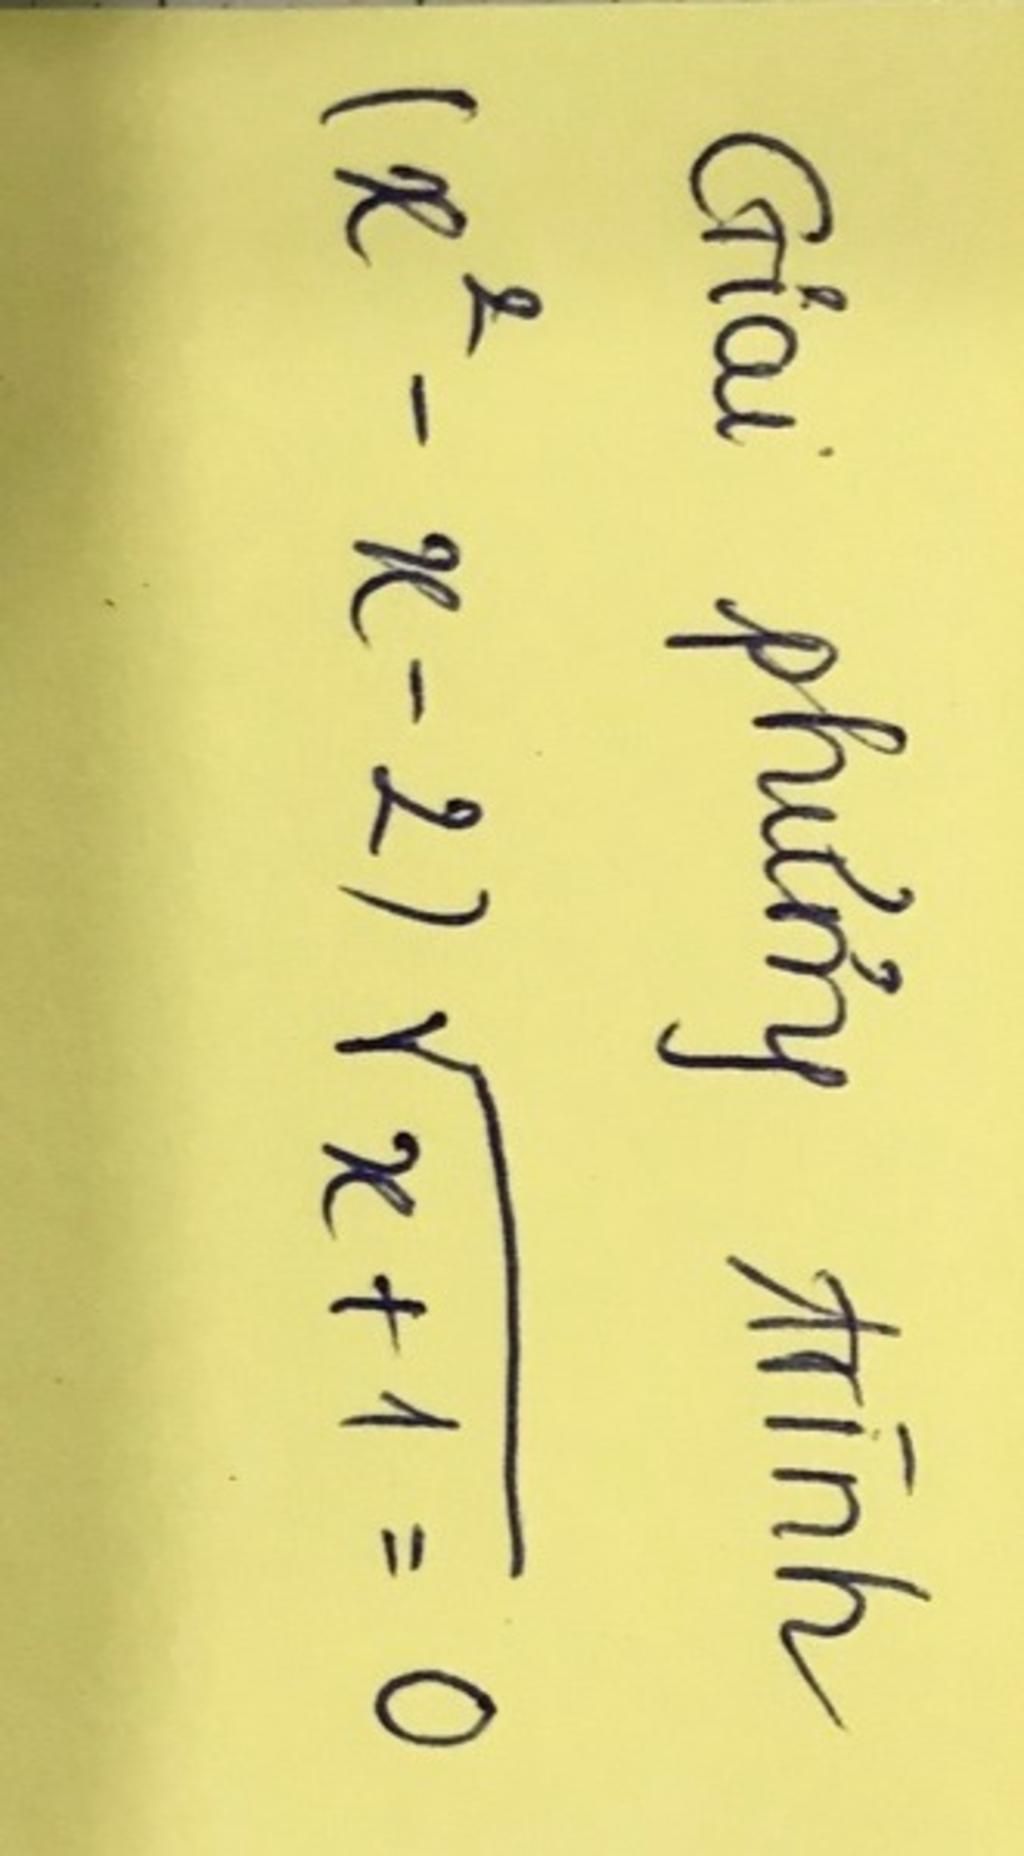 Giải phương trình
(x² - x - 2) √(x + 1) = 0